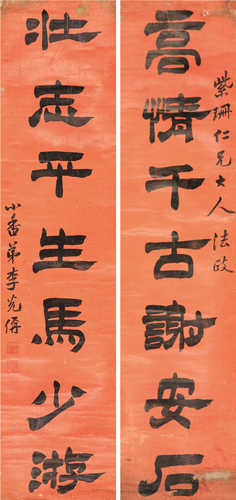 紫珊仁兄大人法政
高情千古謝安石
壯志平生馬少游
小香弟李光儕